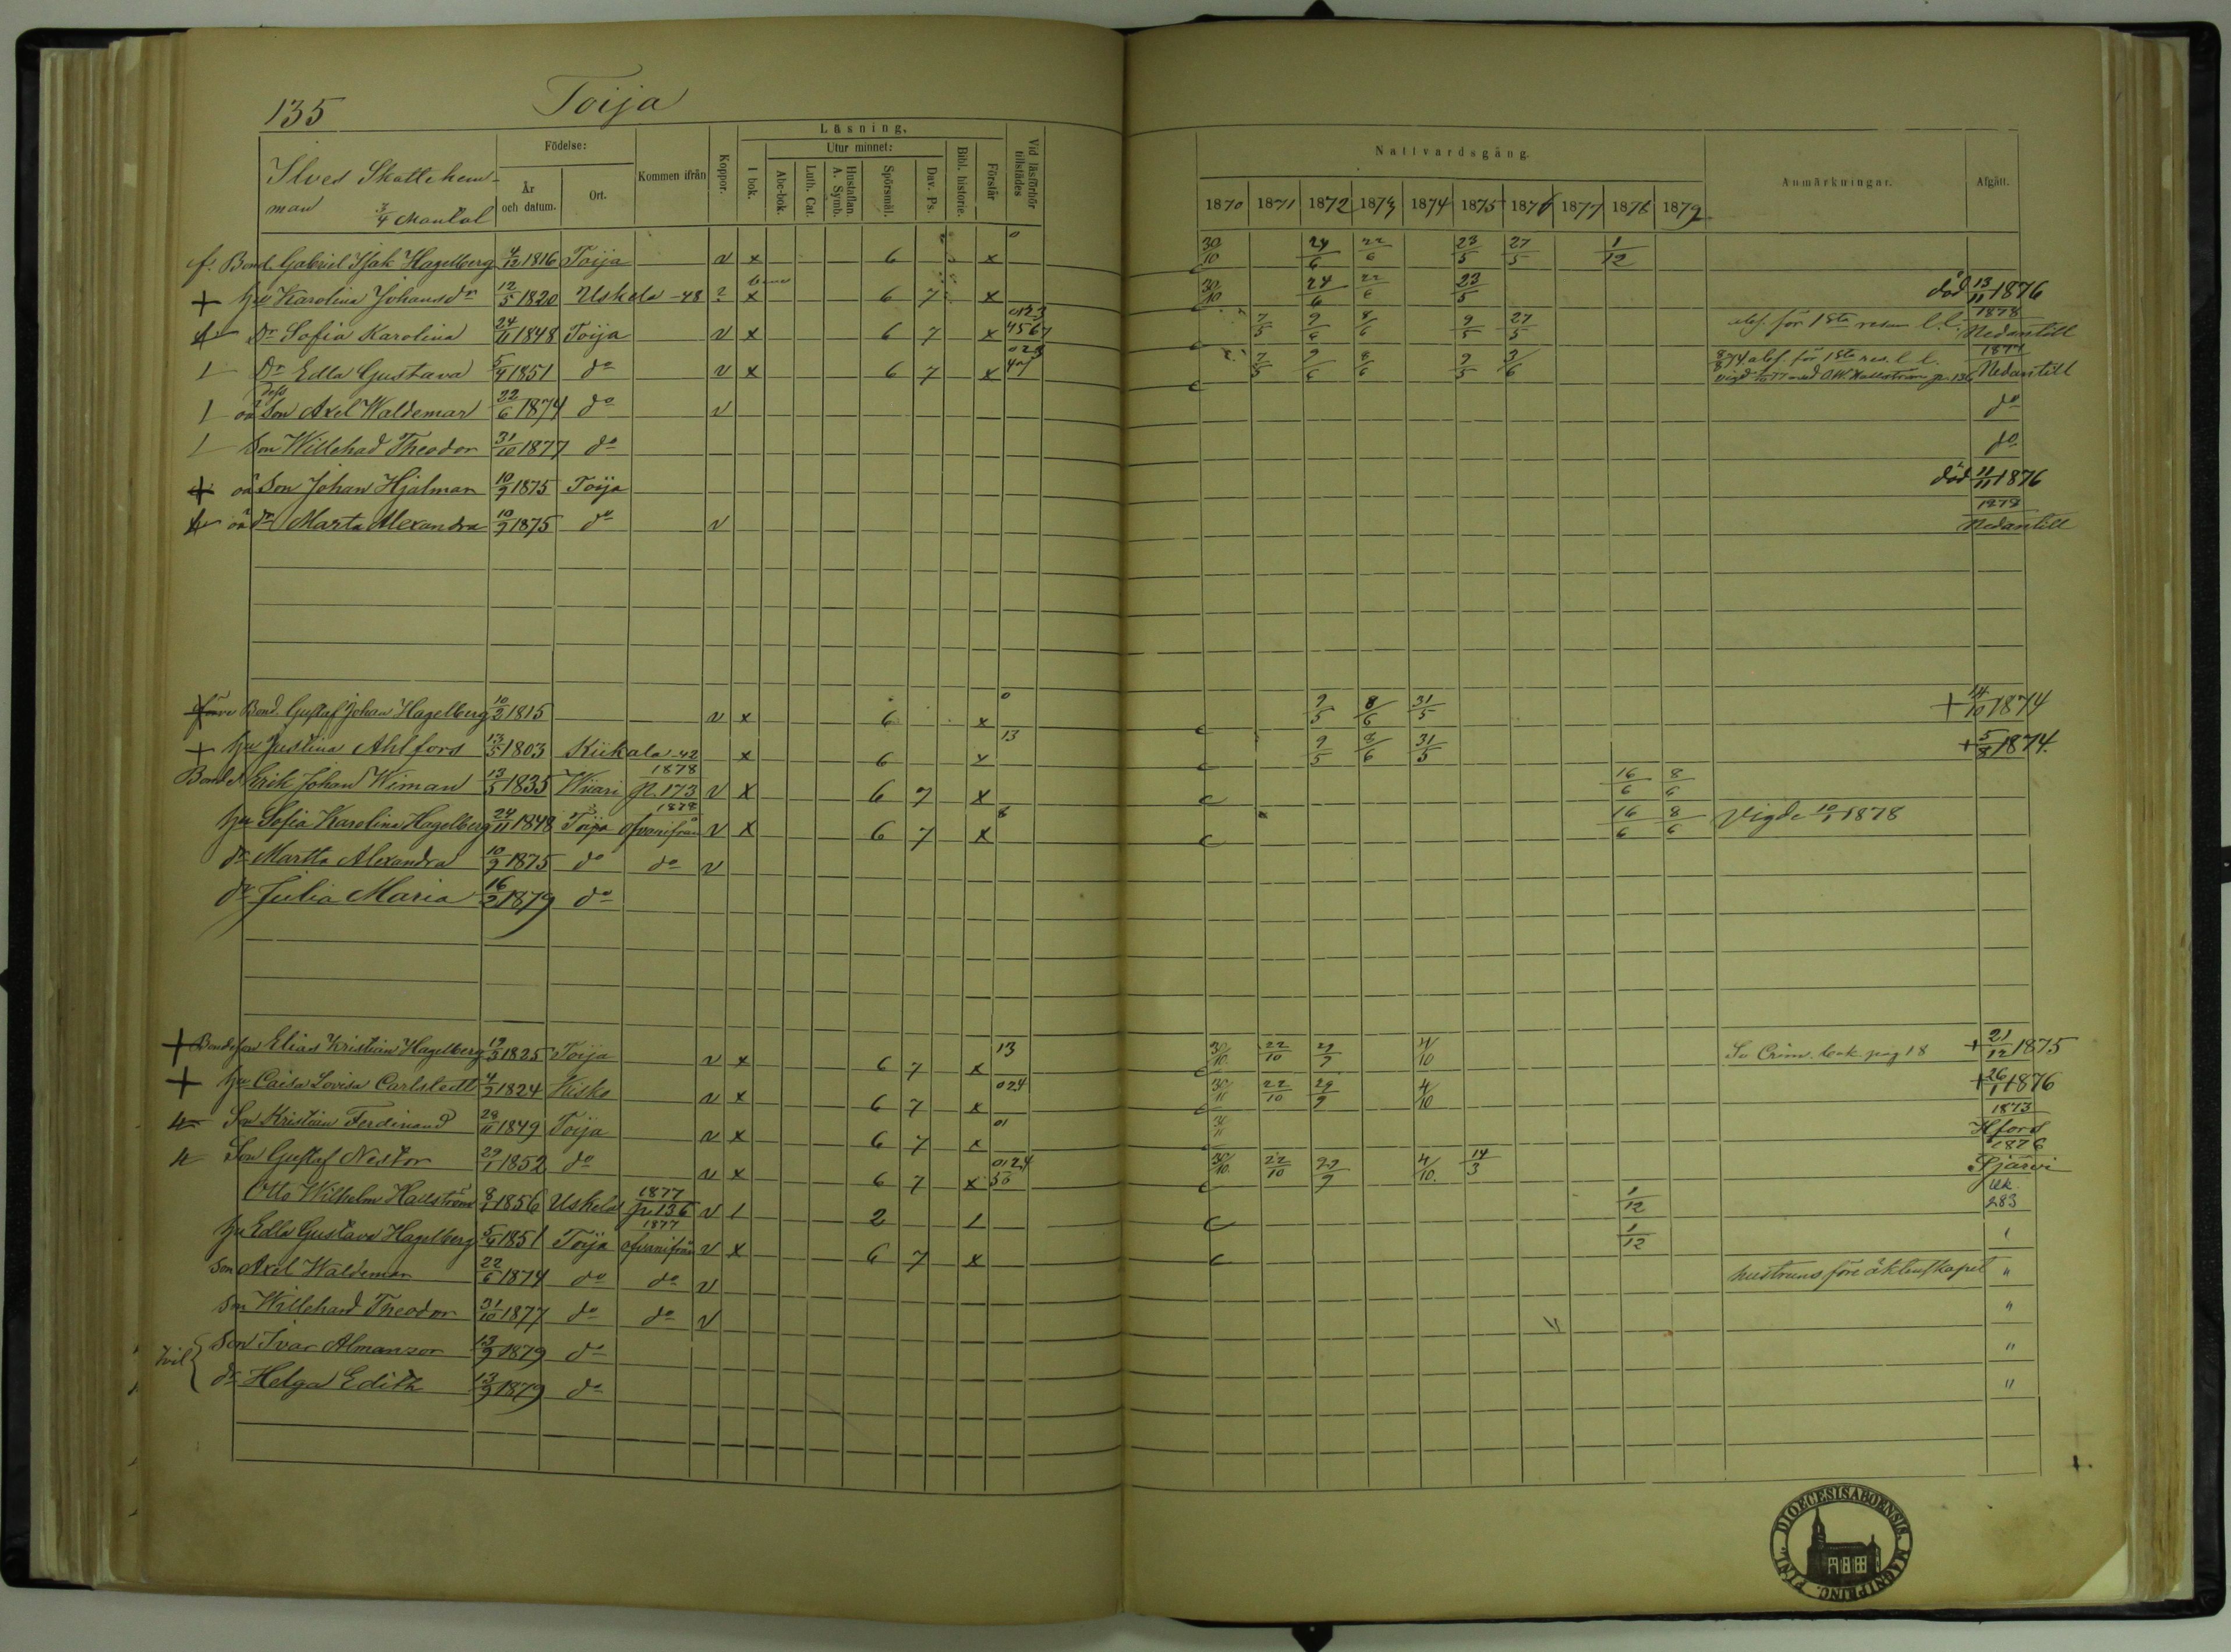 135 Toija
Ilves Skattehem-
man 3/4 Mantal
Födelse:
År och datum.
Ort.
Kommen ifrån
Koppor.
Läsning.
I bok.
Utur minnet:
Abc-bok.
Luth. Cat.
Hustaflan. A. Symb.
Spörsmål.
Dav. Ps.
Bibl. historie.
Förstår
Vid läsförhör tillstädes
Nattvardsgång.
1870 1871 1872 1873 1874 1875 1876 1877 1878 1879
Anmärkningar.
Afgått.
f. Bond. Gabriel Isak Hagelberg 4/12 1816 Toija v x 6 x 0 30/10 24/6 22/6 23/5 27/5 1/12
+ hu Karolina Johansdr 12/5 1820 Uskela -48 ? x 6 7 x 30/10 24/6 22/6 23/5 död 13/11 1876
Dr Sofia Karolina 24/11 1848 Toija v x 6 7 x 0123 4567 7/5 9/6 8/6 9/5 27/5 abs. för 1sta resan l.l. 1878 Nedantill
Dr Edla Gustava 5/9 1851 do v x 6 7 x 023 7/5 9/6 8/6 9/5 3/6 8/8 74 abs. för 1sta res. l.l. 1877 Nedantill
vigd 77 med O.W. Hallström p. 136
oä Son Axel Waldemar 22/6 1874 do v do
Son Willehad Theodor 31/10 1877 do do
+ oä Son Johan Hjalmar 10/9 1875 Toija död 11/11 1876
oä dr Marta Alexandra 10/9 1875 do v 1878 Nedantill
Bond. Gustaf Johan Hagelberg 10/2 1815 v x 6 x 0 9/5 8/6 31/5 + 14/10 1874
+ hu Justina Ahlfors 13/5 1803 Kiikala -42 x 6 x 13 9/5 8/6 31/5 + 5/8 1874.
Bonde Erik Johan Wiman 13/5 1835 Wiiari 1878 p. 173 v x 6 7 x 16/6 8/6
hu Sofia Karolina Hagelberg 24/11 1848 Toija 1878 ofvanifrån v x 6 7 x 8 16/6 8/6 Vigde 10/1 1878
dr Martta Alexandra 10/9 1875 do do v
dr Julia Maria 16/2 1879 do
+ Bondeson Elias Kristian Hagelberg 19/3 1825 Toija v x 6 7 x 13 30/10 22/10 29/9 4/10 Se Crim. bok pag 18 + 21/12 1875
+ hu Caisa Lovisa Carlstedt 4/9 1824 Kisko v x 6 7 x 024 22/10 29/9 4/10 + 26/1 1876
Son Kristian Ferdinand 28/11 1849 Toija v x 6 7 x 01 1873 Hfors
Son Gustaf Nestor 29/1 1852 do v x 6 7 x 0124 30/10 22/10 29/9 4/10 14/3 1876 Pjärvi
Otto Wilhelm Hallström 8/1 1856 Uskela 1877 p. 136 v 1 2 1 1/12 Uk. 283
hu Edla Gustava Hagelberg 5/9 1851 Toija 1877 ofvanifrån v x 6 7 x 1/12
Son Axel Waldemar 22/6 1874 do do v hustruns före äktenskapet "
Son Willehard Theodor 31/10 1877 do do v "
Tvil { Son Ivar Almanzor 13/9 1879 do "
dr Helga Edith 13/9 1879 do "
DIOECESIS ABOENSIS. MAGNI PRINC. FINL.